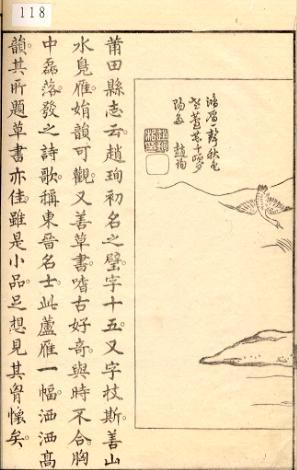 118
鴻鴈一聲秋水
趙珣
莆田縣志云趙珣初名之璧字十五又字枝斯善山
水鳧雁娟韻可觀又善草書嗜古好奇與時不合胸
中磊落發之詩歌稱東晉名士此蘆雁一幅洒洒高
韻其所題草書亦佳雖是小品足想見其胷懷矣